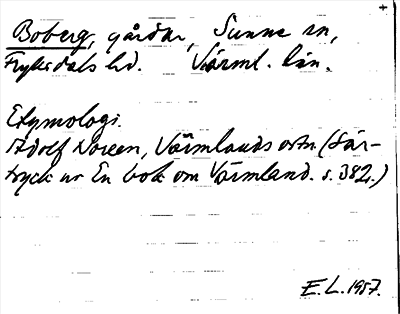 Boberg, gårdar, Sunne sn,
Fryksdals hd. Värml. län.
Etymologi.
Adolf Noreen, Värmlands ortn. (Sär-
tryck ur En bok om Värmland. s. 382.)
E.L. 1957.